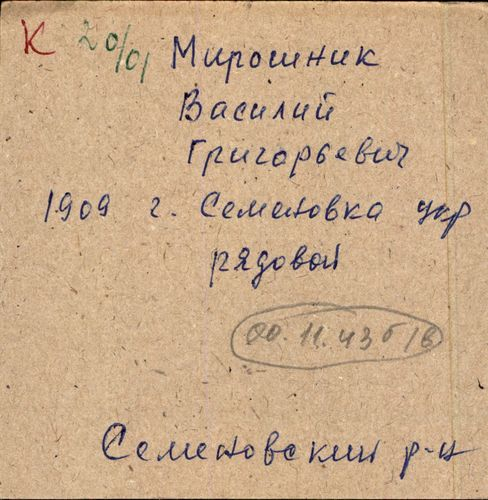 К 20/01 Мирошник
Василий
Григорьевич
1909 г. Семеновка укр
рядовой
00.11.43 б/в
Семеновский р-н